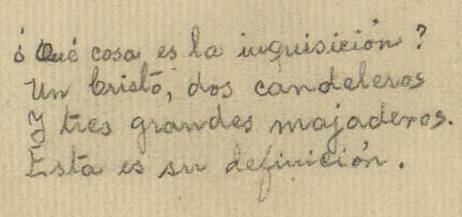 ¿Qué cosa es la inquisición?
Un Cristo, dos candeleros
Y tres grandes majaderos.
Esta es su definición.